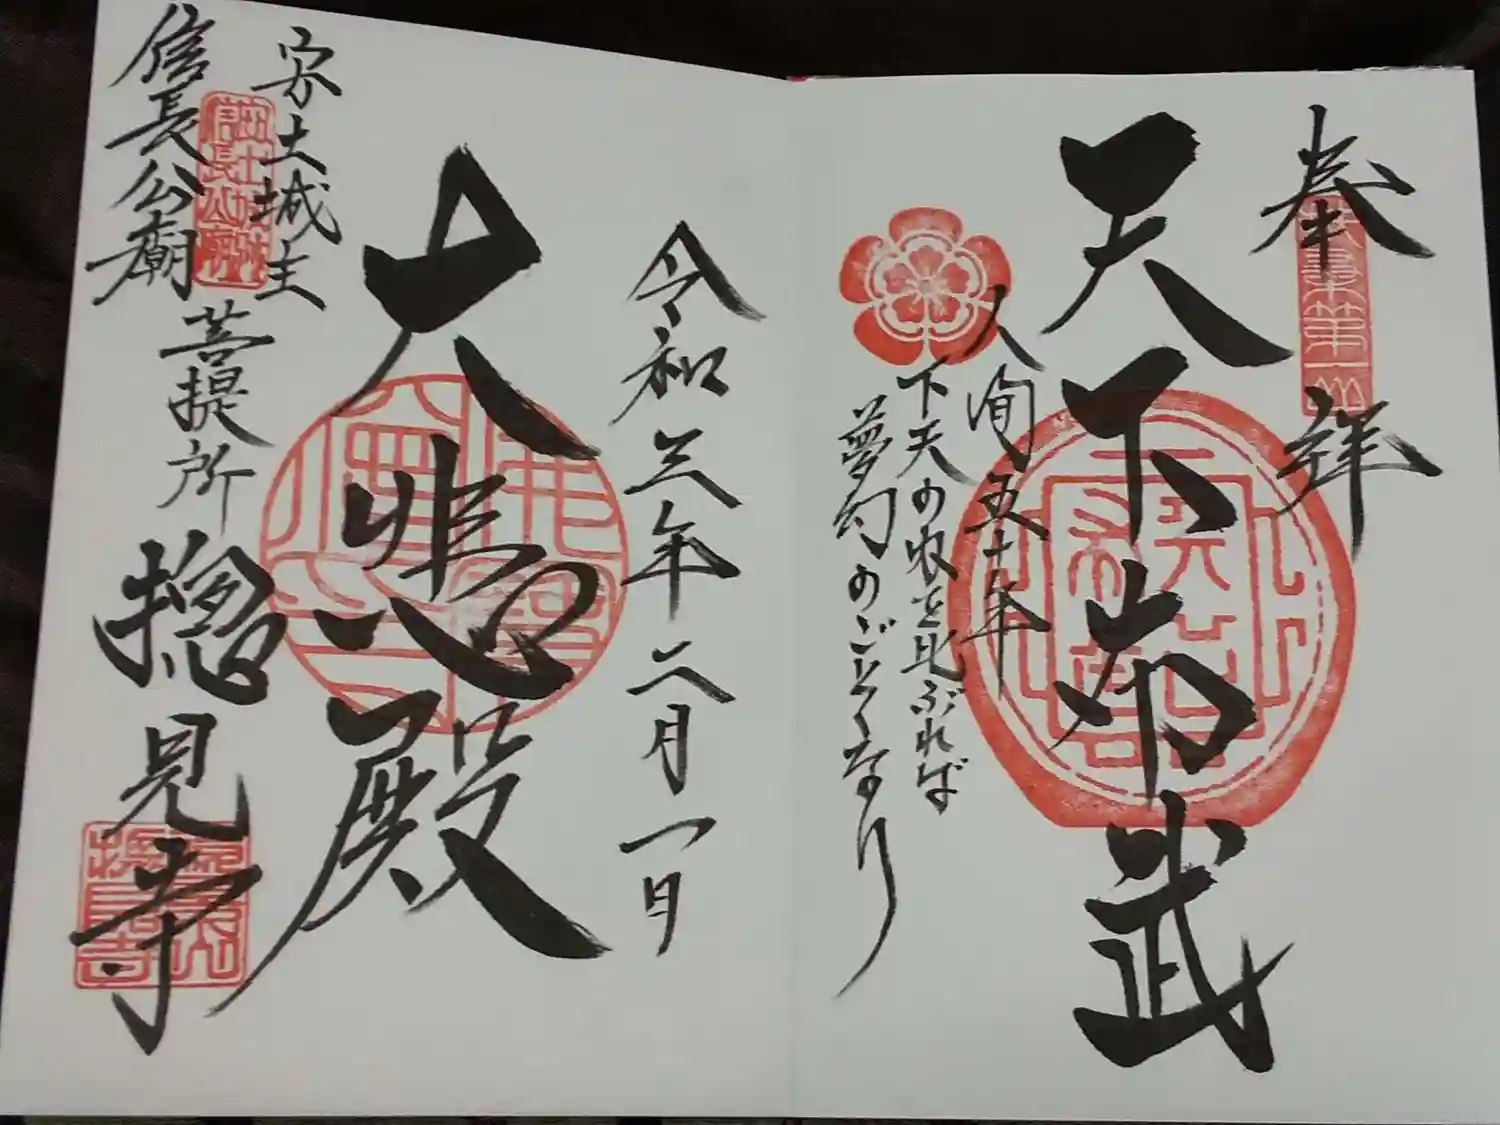 奉拝
天下布武
人間五十年
下天の内を比ぶれば
夢幻のごとくなり
令和三年二月一日
大悲殿
安土城主
信長公廟
菩提所
摠見寺